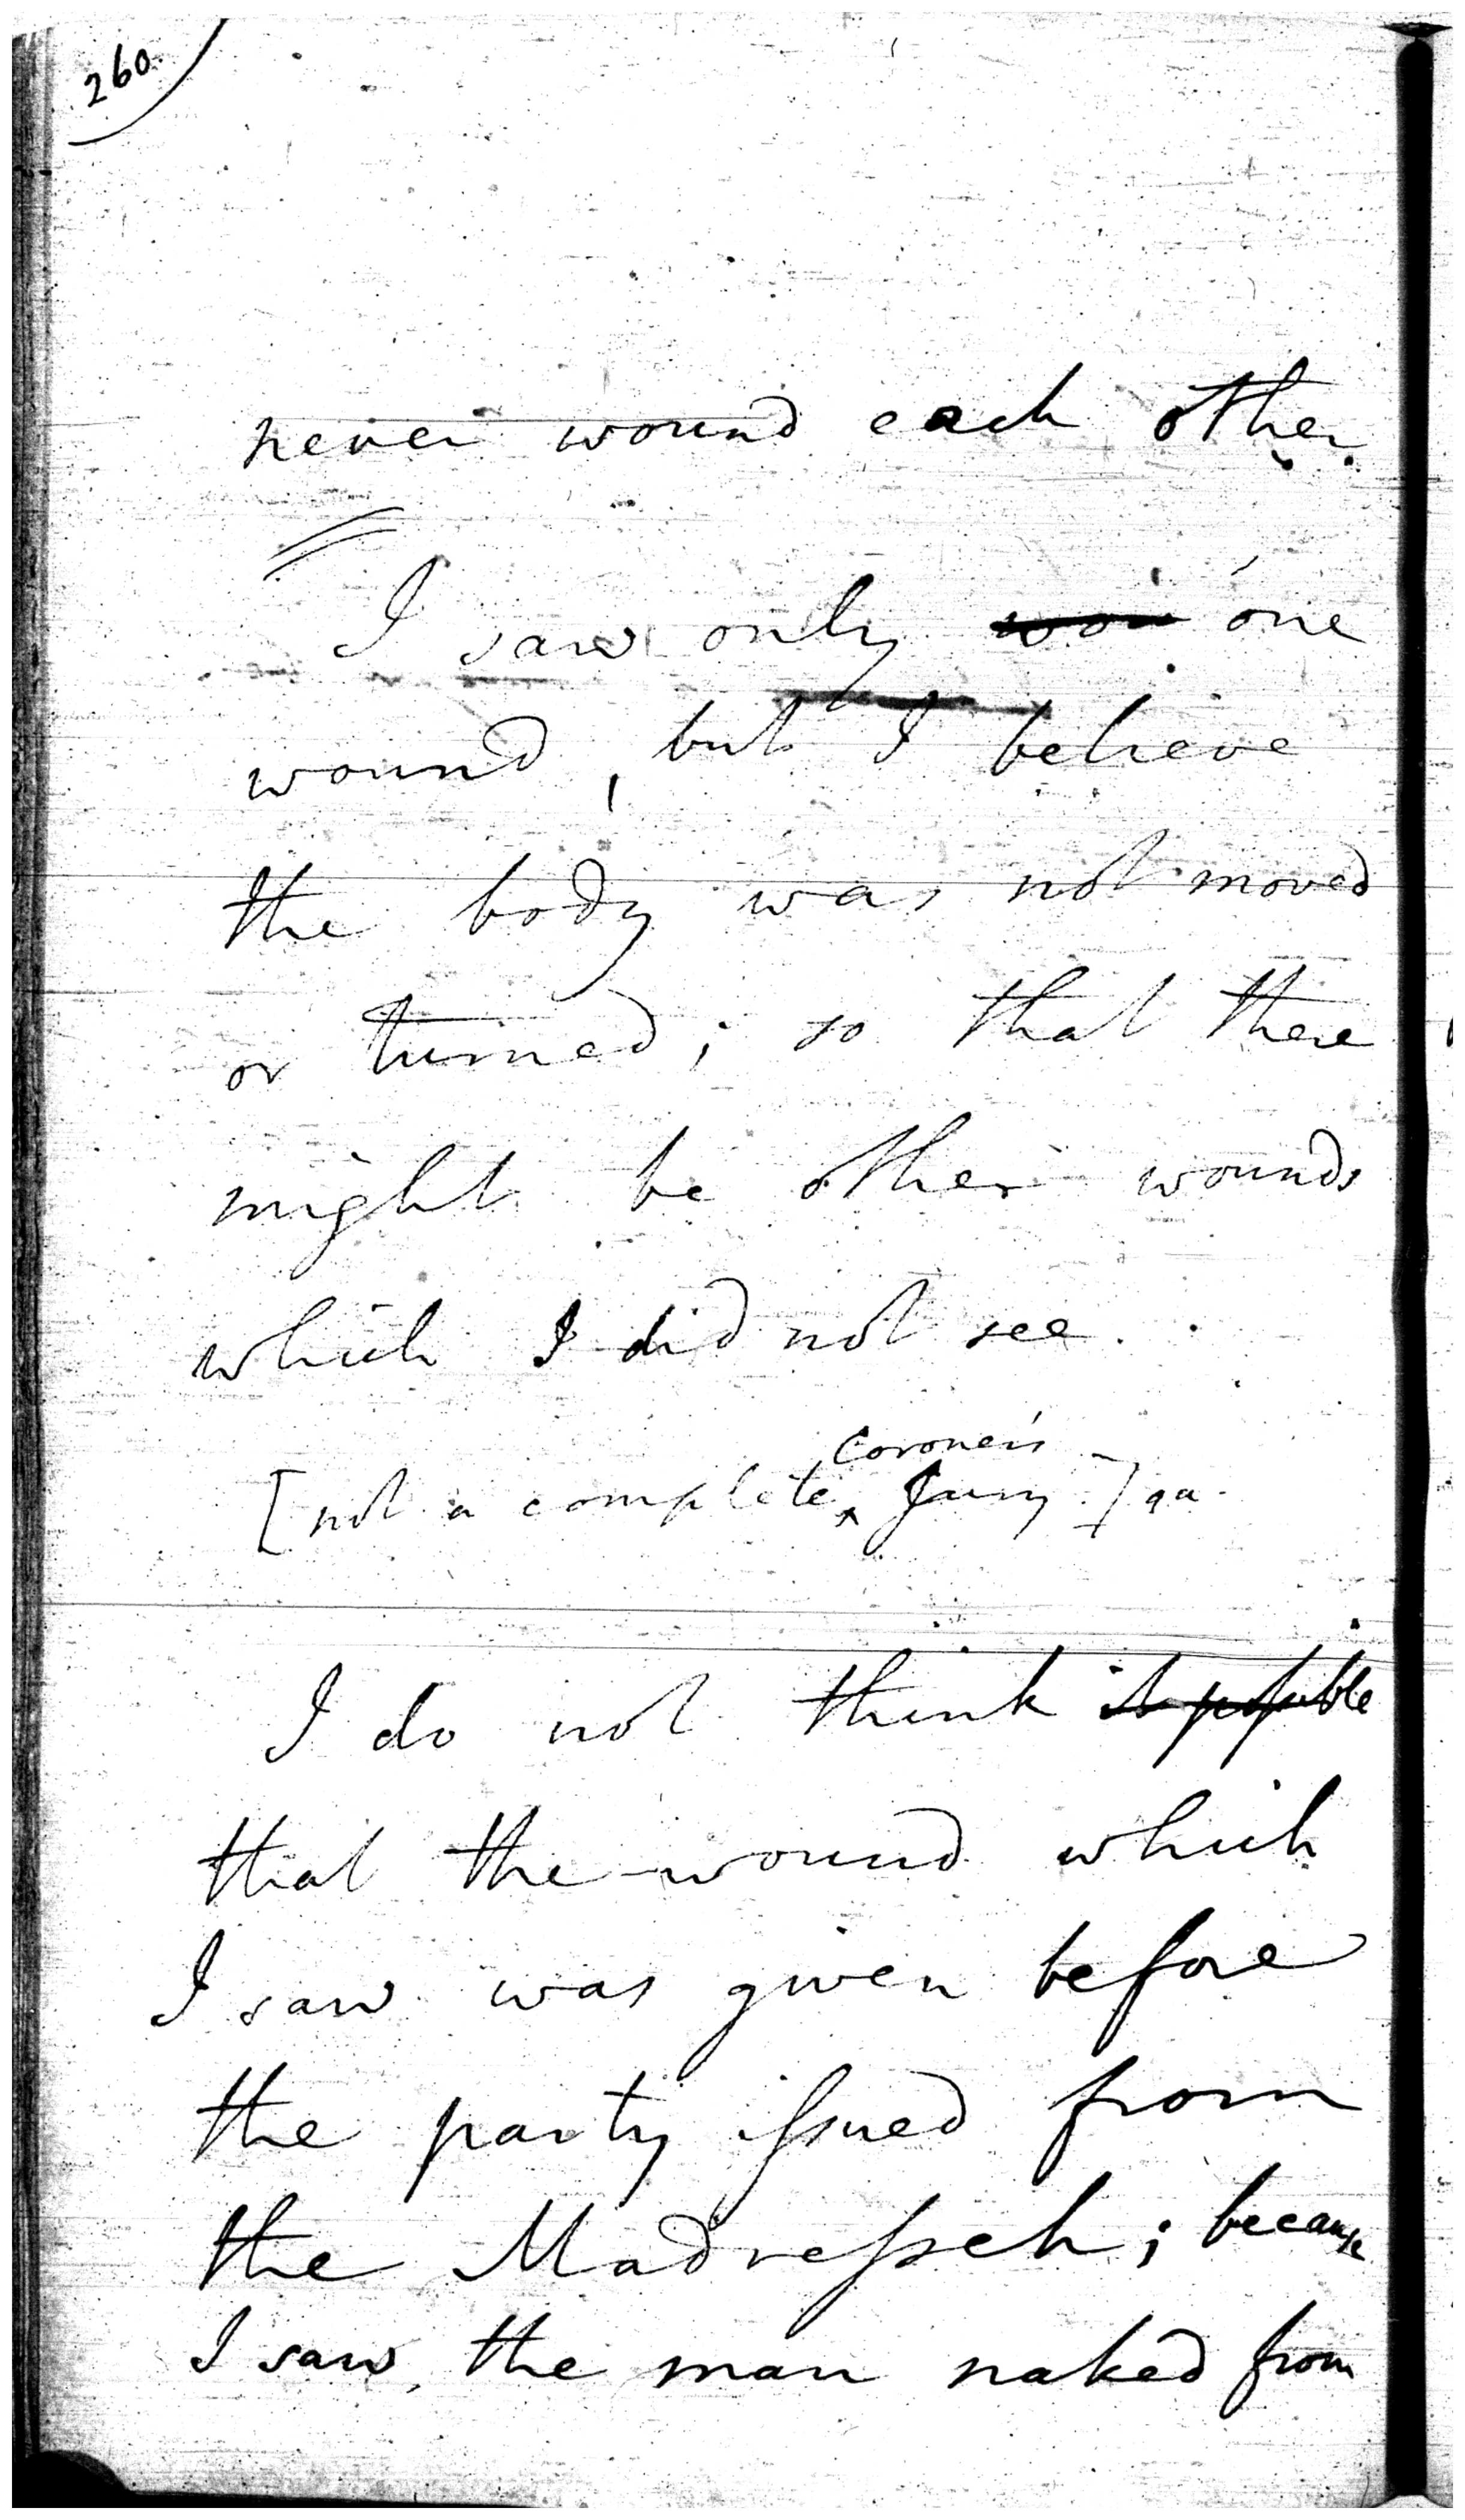 260
never wound each other.
I saw only woū one
wound, but I believe
the body was not moved
or turned; so that there
might be other wounds
which I did not see.
coroner's
[not a complete ‸ Jury.] qu.
I do not think it possible
that the wound which
I saw was given before
the party issued from
the Madresseh; because
I saw the man naked from